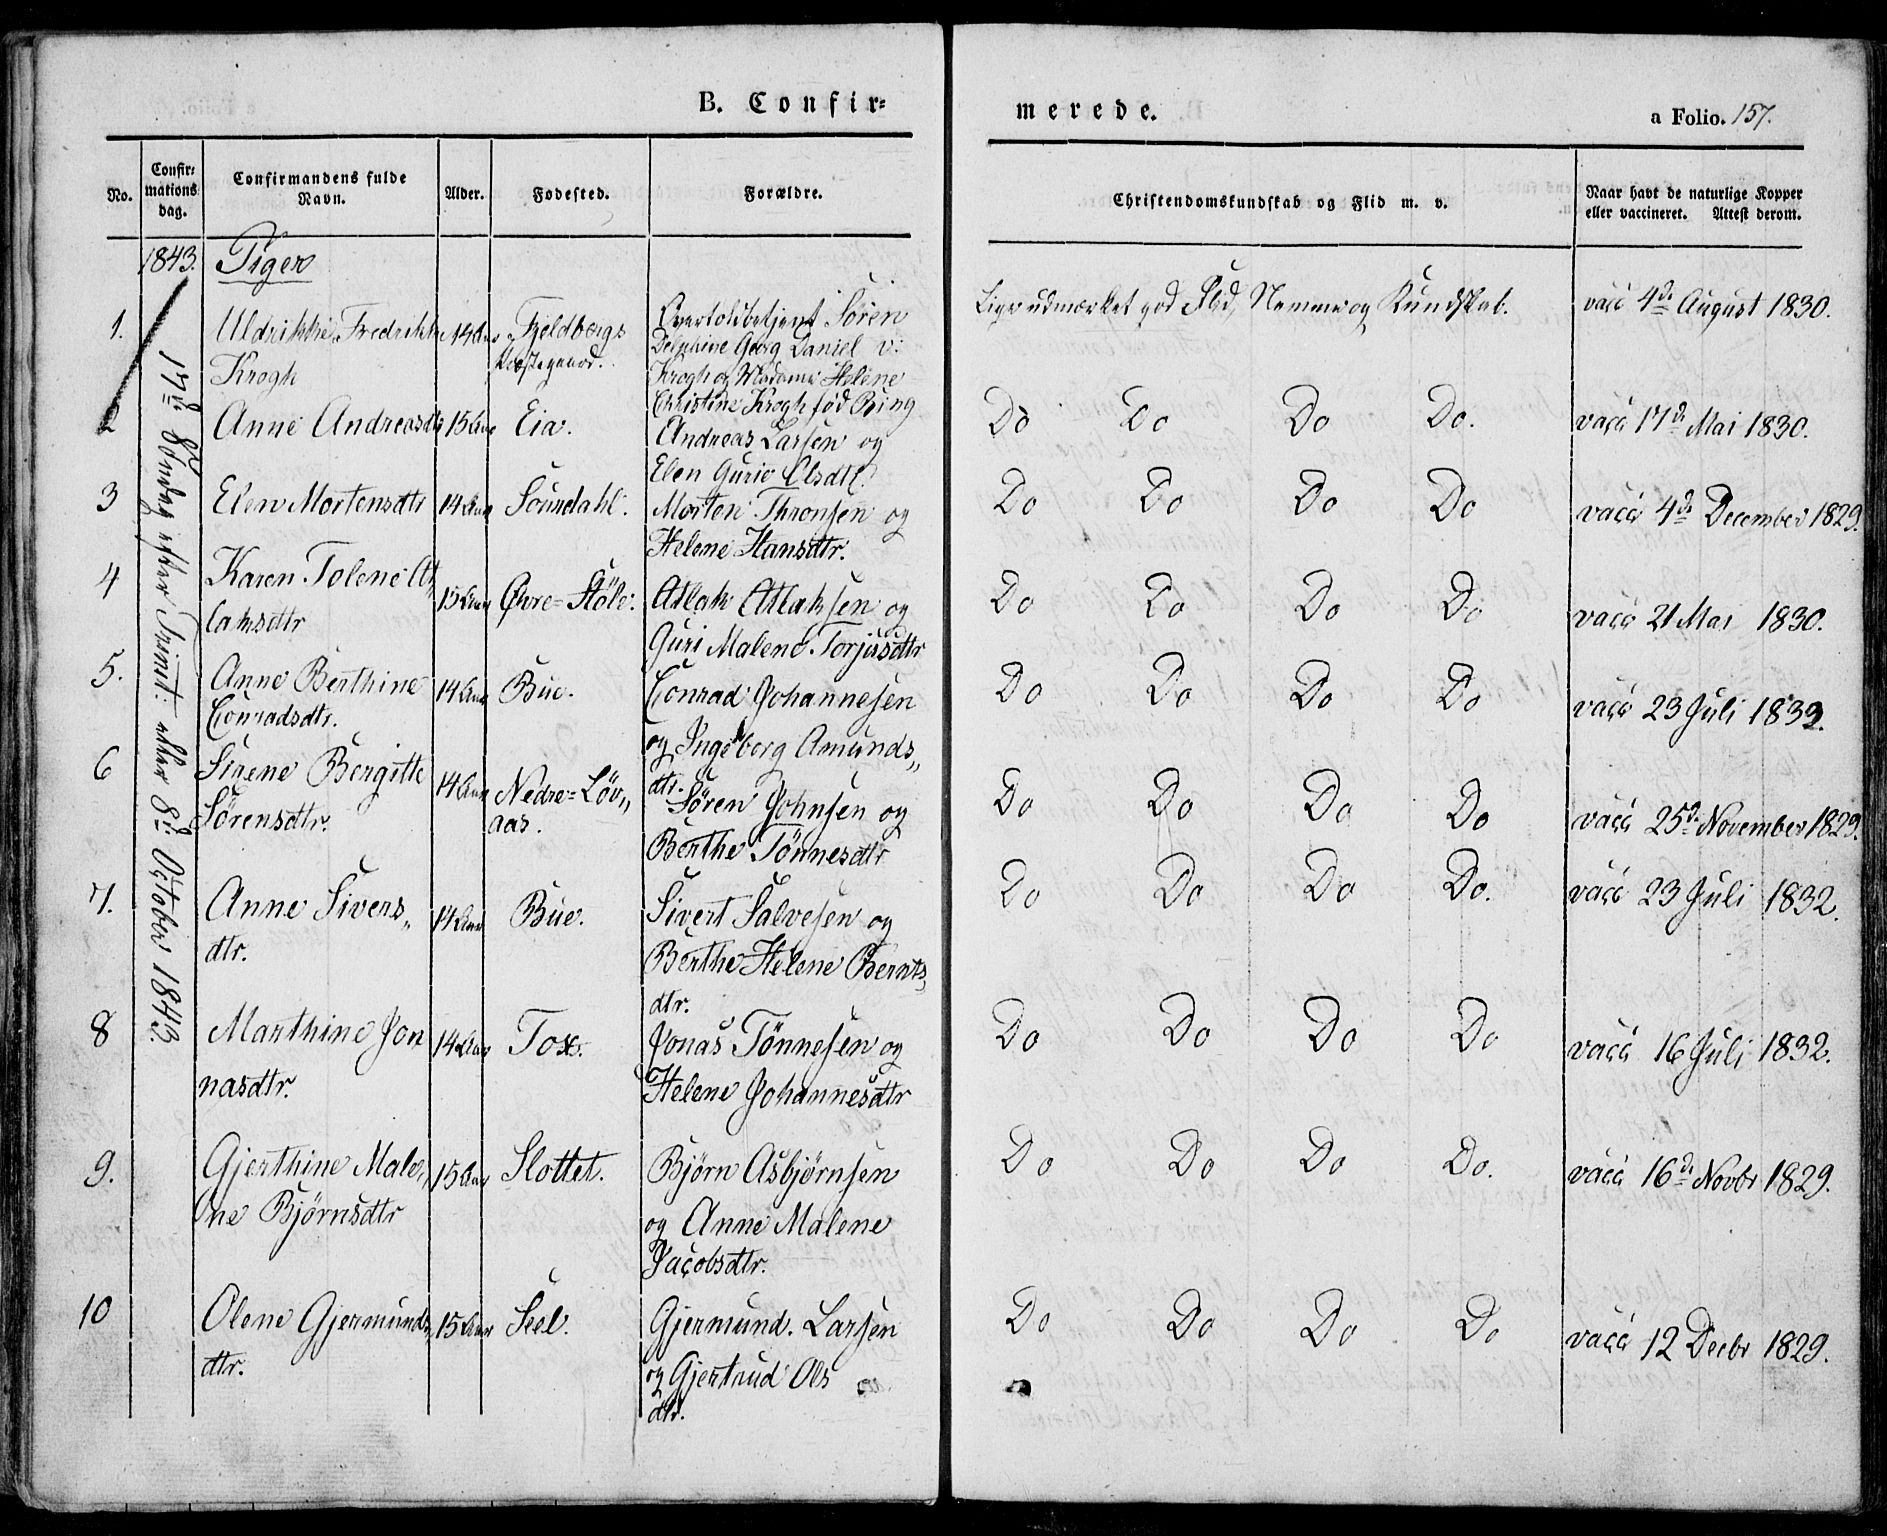 B. Confir-
merede.
a Folio. 157.
No.
Confir-
mations
dag.
Confirmandens fulde
Navn.
Alder.
Fødested.
Forældre.
Christendomskundskab og Flid m. v.
Naar havt de naturlige Kopper
eller vaccineret. Attest derom.
1843.
17de Søndag efter Trinit: eller 8de October 1843.
Piger
1.
Uldrikke Fredrikke
Krogh
14 Aar
Fjeldbergs
Præstegaard.
Overtoldbetjent Søren
Delphine Georg Daniel v:
Krogh og Madame Helene
Christine Krogh fød Bing
Lige udmærket god Flid, Nemme og Kundskab.
vacc 4de August 1830.
2
Anne Andreasdtr
15 Aar
Eia.
Andreas Larsen og
Elen Gurie Olsdtr.
Do Do Do Do.
vacc 17de Mai 1830.
3
Elen Mortensdtr
14 Aar
Soundahl.
Morten Thronsen og
Helene Hansdtr.
Do Do Do Do
vacc 4de December 1829.
4
Karen Tolene At
laksdtr
15 Aar
Øvre=Støle.
Atlak Atlaksen og
Guri Malene Torjusdtr
Do Do Do Do
vacc 21 Mai 1830.
5.
Anne Berthine
Conradsdtr.
14 Aar
Bue.
Conrad Johannesen
og Ingeborg Amunds„
dtr.
Do Do Do Do
vacc 23 Juli 1832.
6
Sirene Bergitte
Sørensdtr.
14 Aar
Nedre=Løv„
aas.
Søren Johnsen og
Berthe Tønnesdtr
Do Do Do Do
vacc 25de November 1829.
7.
Anne Sivers„
dtr.
14 Aar
Bue.
Sivert Salvesen og
Berthe Helene Bernts„
dtr.
Do Do Do Do.
vacc 23 Juli 1832.
8
Marthine Jon
nasdtr.
14 Aar
Toxe.
Jonas Tønnesen og
Helene Johannesdtr
Do Do Do Do
vacc 16 Juli 1832.
9.
Gjerthine Male„
ne Bjørnsdtr
15 Aar
Slottet.
Bjørn Asbjørnsen
og Anne Malene
Jacobsdtr.
Do Do Do Do.
vacc 16de Novbr 1829.
10
Olene Gjermunds„
dtr.
15 Aar
Seel.
Gjermund. Larsen
og Gjertrud Ols
dtr.
Do Do Do Do
vacc 12 Decbr 1829.